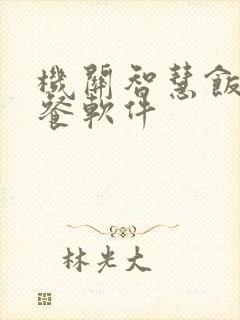 機關智慧飯
餐軟件
林光大